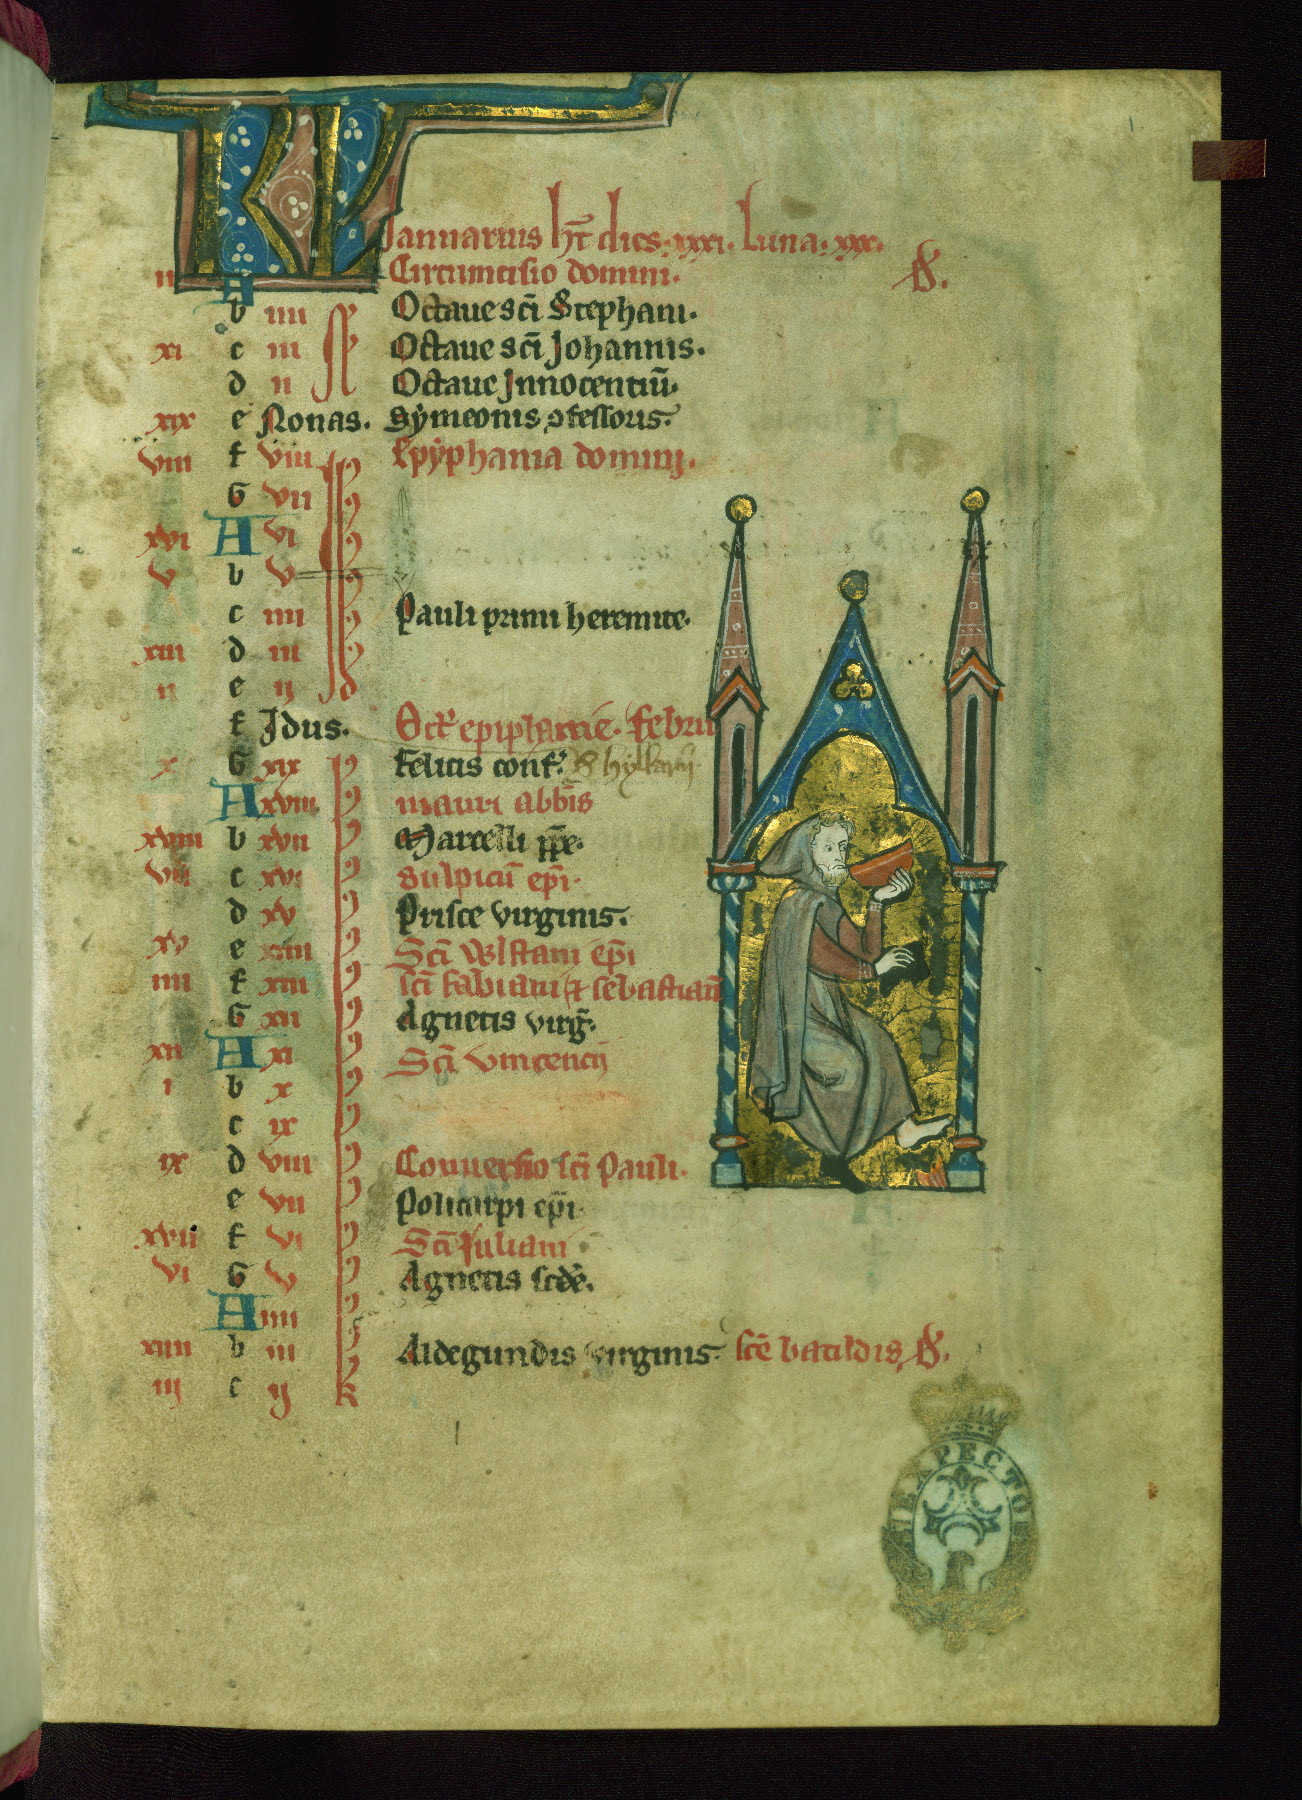 KL
Januarius hȷ̄t dies. xxxi. Luna. xxx.
A Circumcisio domini.
b iiii Octaue sc̄i Stephani.
xi c iii Octaue sc̄i Johannis.
d ii Octaue Jnnocentiū.
xix e Nonas. Sẏmeonis ɔfessoris.
viii f viii Epẏphania dominij.
G vii
xvi A vi
v b v
c iiii Pauli primi heremite.
xiii d iii
ii e ij
f Jdus. Oct' epiphanie.
x G xix Felicis conf'.
A xviii mauri abb̄is
xviii b xvii Marcelli pp̄e.
vii c xvi sulpicii ep̄i.
d xv Prisce virginis.
xv e xiiii Sc̄i Wlstani ep̄i
iiii f xiii sc̄i fabiani ⁊ sebastiani
G xii Agnetis virḡ.
xii A xi Sc̄i vincencij
i b x
c ix
ix d viii Conuersio sc̄i Pauli.
e vii Policarpi ep̄i.
xvii f vi Sc̄i Juliani
vi G v Agnetis sc̄de.
A iiii
xiiii b iii Aldegundis virginis. sc̄e batildis
iij c ij
EXPECTO